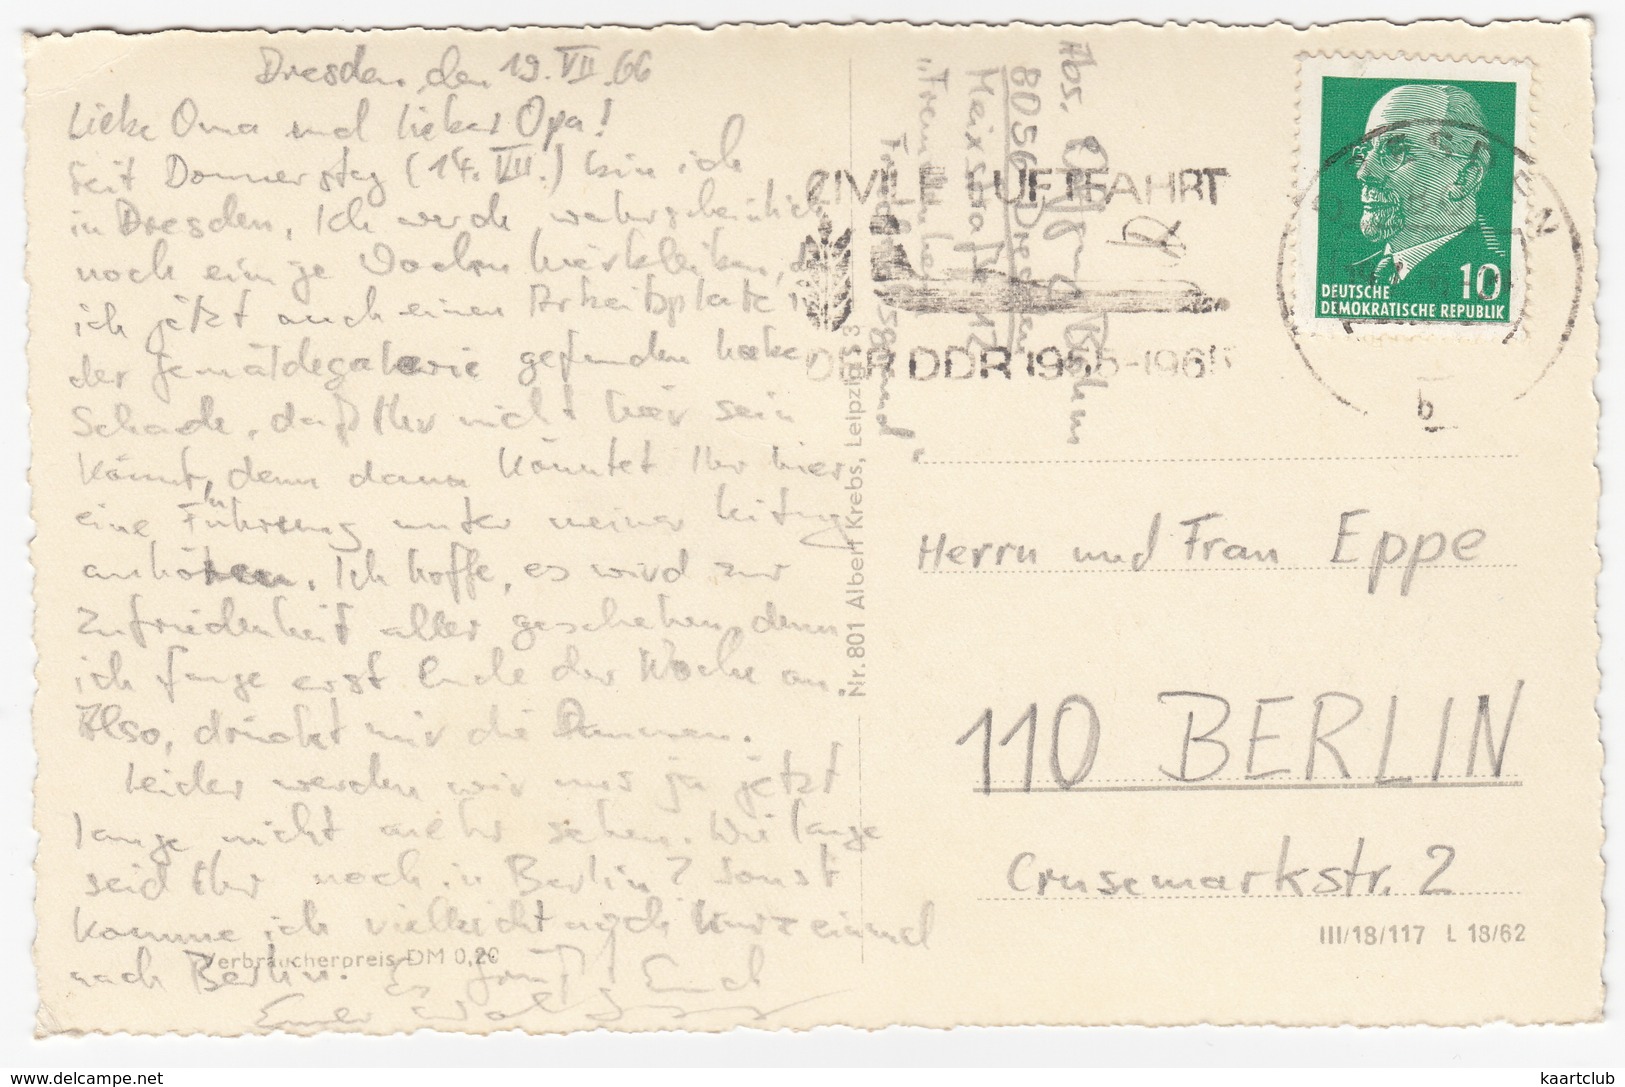 Dresden, den 19. VII. 66
Liebe Oma und lieber Opa!
Seit Donnerstag (14. VII.) bin ich
in Dresden. Ich werde wahrscheinlich
noch einige Wochen hierbleiben, da
ich jetzt auch einen Arbeitsplatz in
der Gemäldegalerie gefunden habe.
Schade, daß Ihr nicht hier sein
könnt, denn dann könntet Ihr hier
eine Führung unter meiner Leitung
anhören. Ich hoffe, es wird zur
Zufriedenheit aller geschehen, denn
ich fange erst Ende der Woche an.
Also, drückt mir die Daumen.
Leider werden wir uns ja jetzt
lange nicht mehr sehen. Wie lange
seid Ihr noch in Berlin? Sonst
komme ich vielleicht noch kurz einmal
nach Berlin. Es grüßt Euch
Euer
Verbraucherpreis DM 0,20
Nr. 801 Albert Krebs, Leipzig S 3
Abs.
8056 Dresden
Meixstraße 12
CIVILE LUFTFAHRT
DER DDR 1955-1965
b
10
DEUTSCHE
DEMOKRATISCHE REPUBLIK
Herrn und Frau Eppe
110 BERLIN
Crusemarkstr. 2
III/18/117 L 18/62
delcampe.net
kaartclub